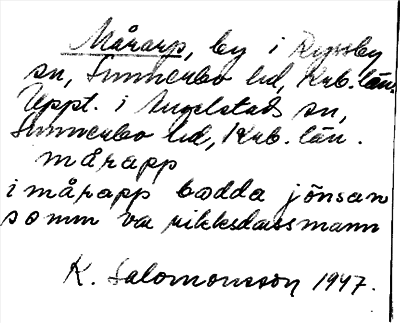 Mårarp, by i Ryssby
sn, Sunnerbo hd, Krb. län.
Uppt. i Angelstads sn,
Sunnerbo hd, Krb. län.
mårapp
i mårapp bodda jönsan
somm va rikksdassmann
K. Salomonsson 1947.